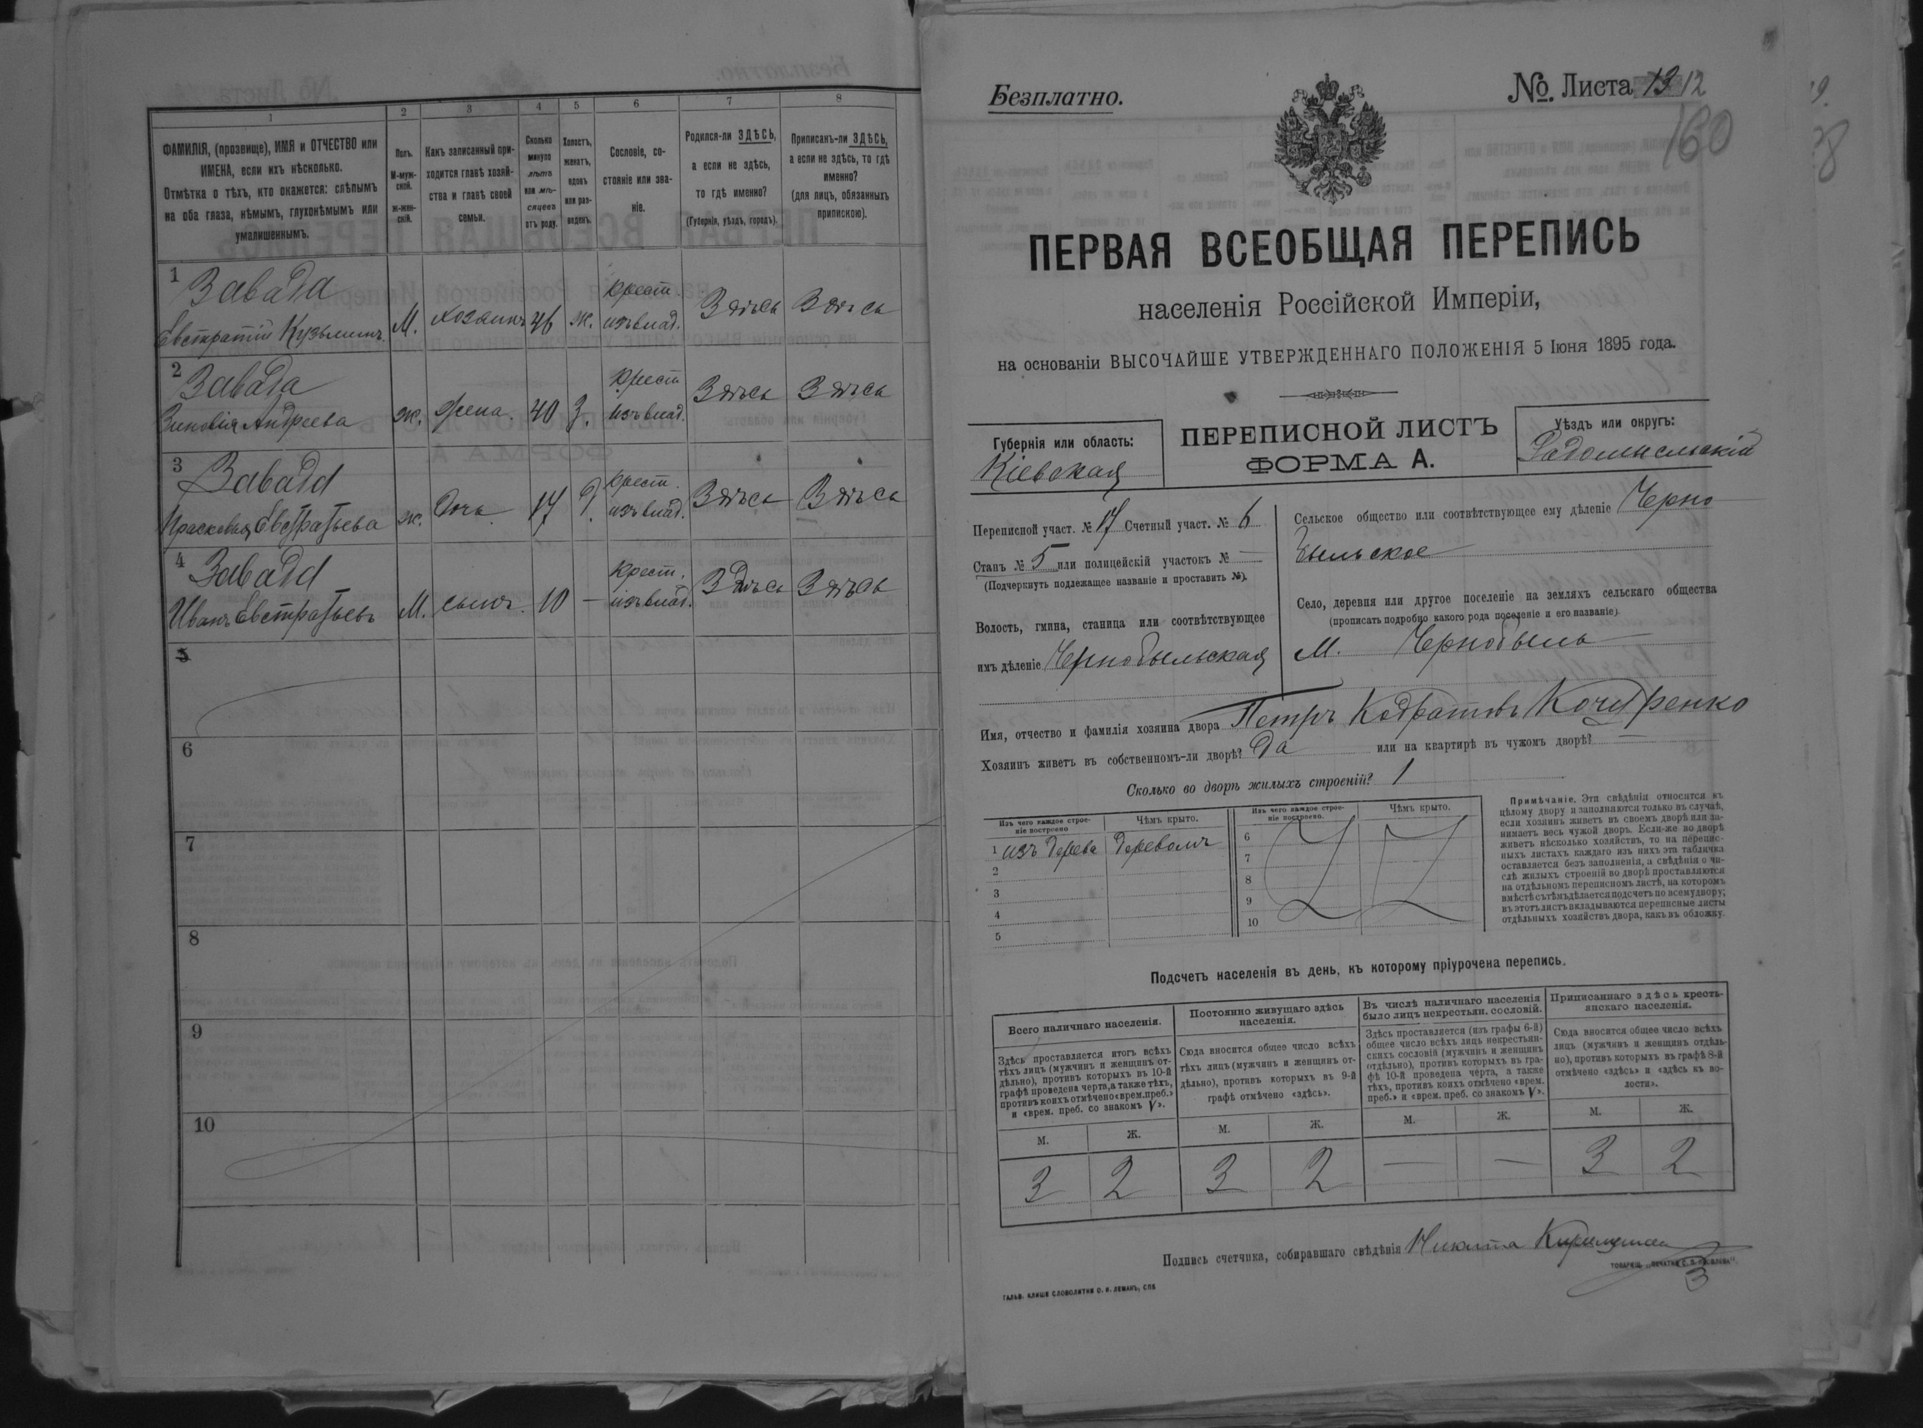 1
2
3
4
5
6
7
8
ФАМИЛІЯ, (прозвище), ИМЯ и ОТЧЕСТВО или
ИМЕНА, если ихъ нѣсколько.
Отмѣтка о тѣхъ, кто окажется: слѣпымъ
на оба глаза, нѣмымъ, глухонѣмымъ или
умалишеннымъ.
Полъ.
М-муж-
ской.
ж-жен-
скій.
Какъ записанный при-
ходится главѣ хозяй-
ства и главѣ своей
семьи.
Сколько
минуло
лѣтъ
или мѣ-
сяцевъ
отъ роду.
Холостъ,
женатъ,
вдовъ
или раз-
веденъ.
Сословіе, со-
стояніе или зва-
ніе.
Родился-ли ЗДѢСЬ,
а если не здѣсь,
то гдѣ именно?
(Губернія, уѣздъ, городъ).
Приписанъ-ли ЗДѢСЬ,
а если не здѣсь, то гдѣ
именно?
(для лицъ, обязанныхъ
припискою).
1 Завада
Евстратій Кузьминъ М. хозяинъ 46 ж. крест. изъ влад. Здѣсь Здѣсь
2 Завада
Зиновія Андреева ж. жена 40 з. крест. изъ влад. Здѣсь Здѣсь
3 Завада
Прасковья Евстратьева ж. дочь 17 д. крест. изъ влад. Здѣсь Здѣсь
4 Завада
Иванъ Евстратьевъ М. сынъ 10 — крест. изъ влад. Здѣсь Здѣсь
5
6
7
8
9
10
Безплатно.
№. Листа 13 12
160
ПЕРВАЯ ВСЕОБЩАЯ ПЕРЕПИСЬ
населенія Россійской Имперіи,
на основаніи ВЫСОЧАЙШЕ УТВЕРЖДЕННАГО ПОЛОЖЕНІЯ 5 Іюня 1895 года.
Губернія или область:
Кіевская
ПЕРЕПИСНОЙ ЛИСТЪ
ФОРМА А.
Уѣздъ или округъ:
Радомысльскій
Переписной участ. № 17 Счетный участ. № 6
Станъ № 5 или полицейскій участокъ № —
(Подчеркнуть подлежащее названіе и проставить №).
Волость, гмина, станица или соотвѣтствующее
имъ дѣленіе Чернобыльская
Сельское общество или соотвѣтствующее ему дѣленіе Черно
быльское
Село, деревня или другое поселеніе на земляхъ сельскаго общества
(прописать подробно какого рода поселеніе и его названіе).
М. Чернобыль
Имя, отчество и фамилія хозяина двора Петръ Кодратовъ Кочиренко
Хозяинъ живетъ въ собственномъ-ли дворѣ? Да или на квартирѣ въ чужомъ дворѣ? —
Сколько во дворѣ жилыхъ строеній? 1
Изъ чего каждое строе-
ніе построено
Чѣмъ крыто.
Изъ чего каждое строе-
ніе построено.
Чѣмъ крыто.
1 изъ дерева деревомъ
2
3
4
5
6
7
8
9
10
Примѣчаніе. Эти свѣдѣнія относятся къ
цѣлому двору и заполняются только въ случаѣ,
если хозяинъ живетъ въ своемъ дворѣ или за-
нимаетъ весь чужой дворъ. Если-же во дворѣ
живетъ нѣсколько хозяйствъ, то на перепис-
ныхъ листахъ каждаго изъ нихъ эта табличка
оставляется безъ заполненія, а свѣдѣнія о чи-
слѣ жилыхъ строеній во дворѣ проставляются
на отдѣльномъ переписномъ листѣ, на которомъ
вмѣстѣ съ тѣмъ дѣлается подсчетъ по всему двору;
въ этотъ листъ вкладываются переписные листы
отдѣльныхъ хозяйствъ двора, какъ въ обложку.
Подсчетъ населенія въ день, къ которому пріурочена перепись.
Всего наличнаго населенія.
Постоянно живущаго здѣсь
населенія.
Въ числѣ наличнаго населенія
было лицъ некрестьян. сословій.
Приписаннаго здѣсь кресть-
янскаго населенія.
Здѣсь проставляется итогъ всѣхъ
тѣхъ лицъ (мужчинъ и женщинъ от-
дѣльно), противъ которыхъ въ 10-й
графѣ проведена черта, а также тѣхъ,
противъ коихъ отмѣчено «врем. преб.»
и «врем. преб. со знакомъ V».
Сюда вносится общее число всѣхъ
тѣхъ лицъ (мужчинъ и женщинъ от-
дѣльно), противъ которыхъ въ 9-й
графѣ отмѣчено «здѣсь».
Здѣсь проставляется (изъ графы 6-й)
общее число всѣхъ лицъ некрестьян-
скихъ сословій (мужчинъ и женщинъ
отдѣльно), противъ которыхъ въ гра-
фѣ 10-й проведена черта, а также
тѣхъ, противъ коихъ отмѣчено «врем.
преб.» и «врем. преб. со знакомъ V».
Сюда вносится общее число всѣхъ
лицъ (мужчинъ и женщинъ отдѣль-
но), противъ которыхъ въ графѣ 8-й
отмѣчено «здѣсь» и «здѣсь къ во-
лости».
М. Ж. М. Ж. М. Ж. М. Ж.
3 2 3 2 — — 3 2
Подпись счетчика, собиравшаго свѣдѣнія Никита
ГАЛЬВ. КЛИШЕ СЛОВОЛИТНИ О. И. ЛЕМАНЪ, СПБ